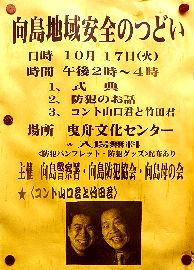 向島地域安全のつどい
日時 10月17日(火)
時間 午後2時〜4時
1、式典
2、防犯のお話
3、コント山口君と竹田君
場所 曳舟文化センター
入場無料
<防犯パンフレット・防犯グッズ>配布あり
主催 向島警察署・向島防犯協会・向島母の会
★〈コント山口君と竹田君〉